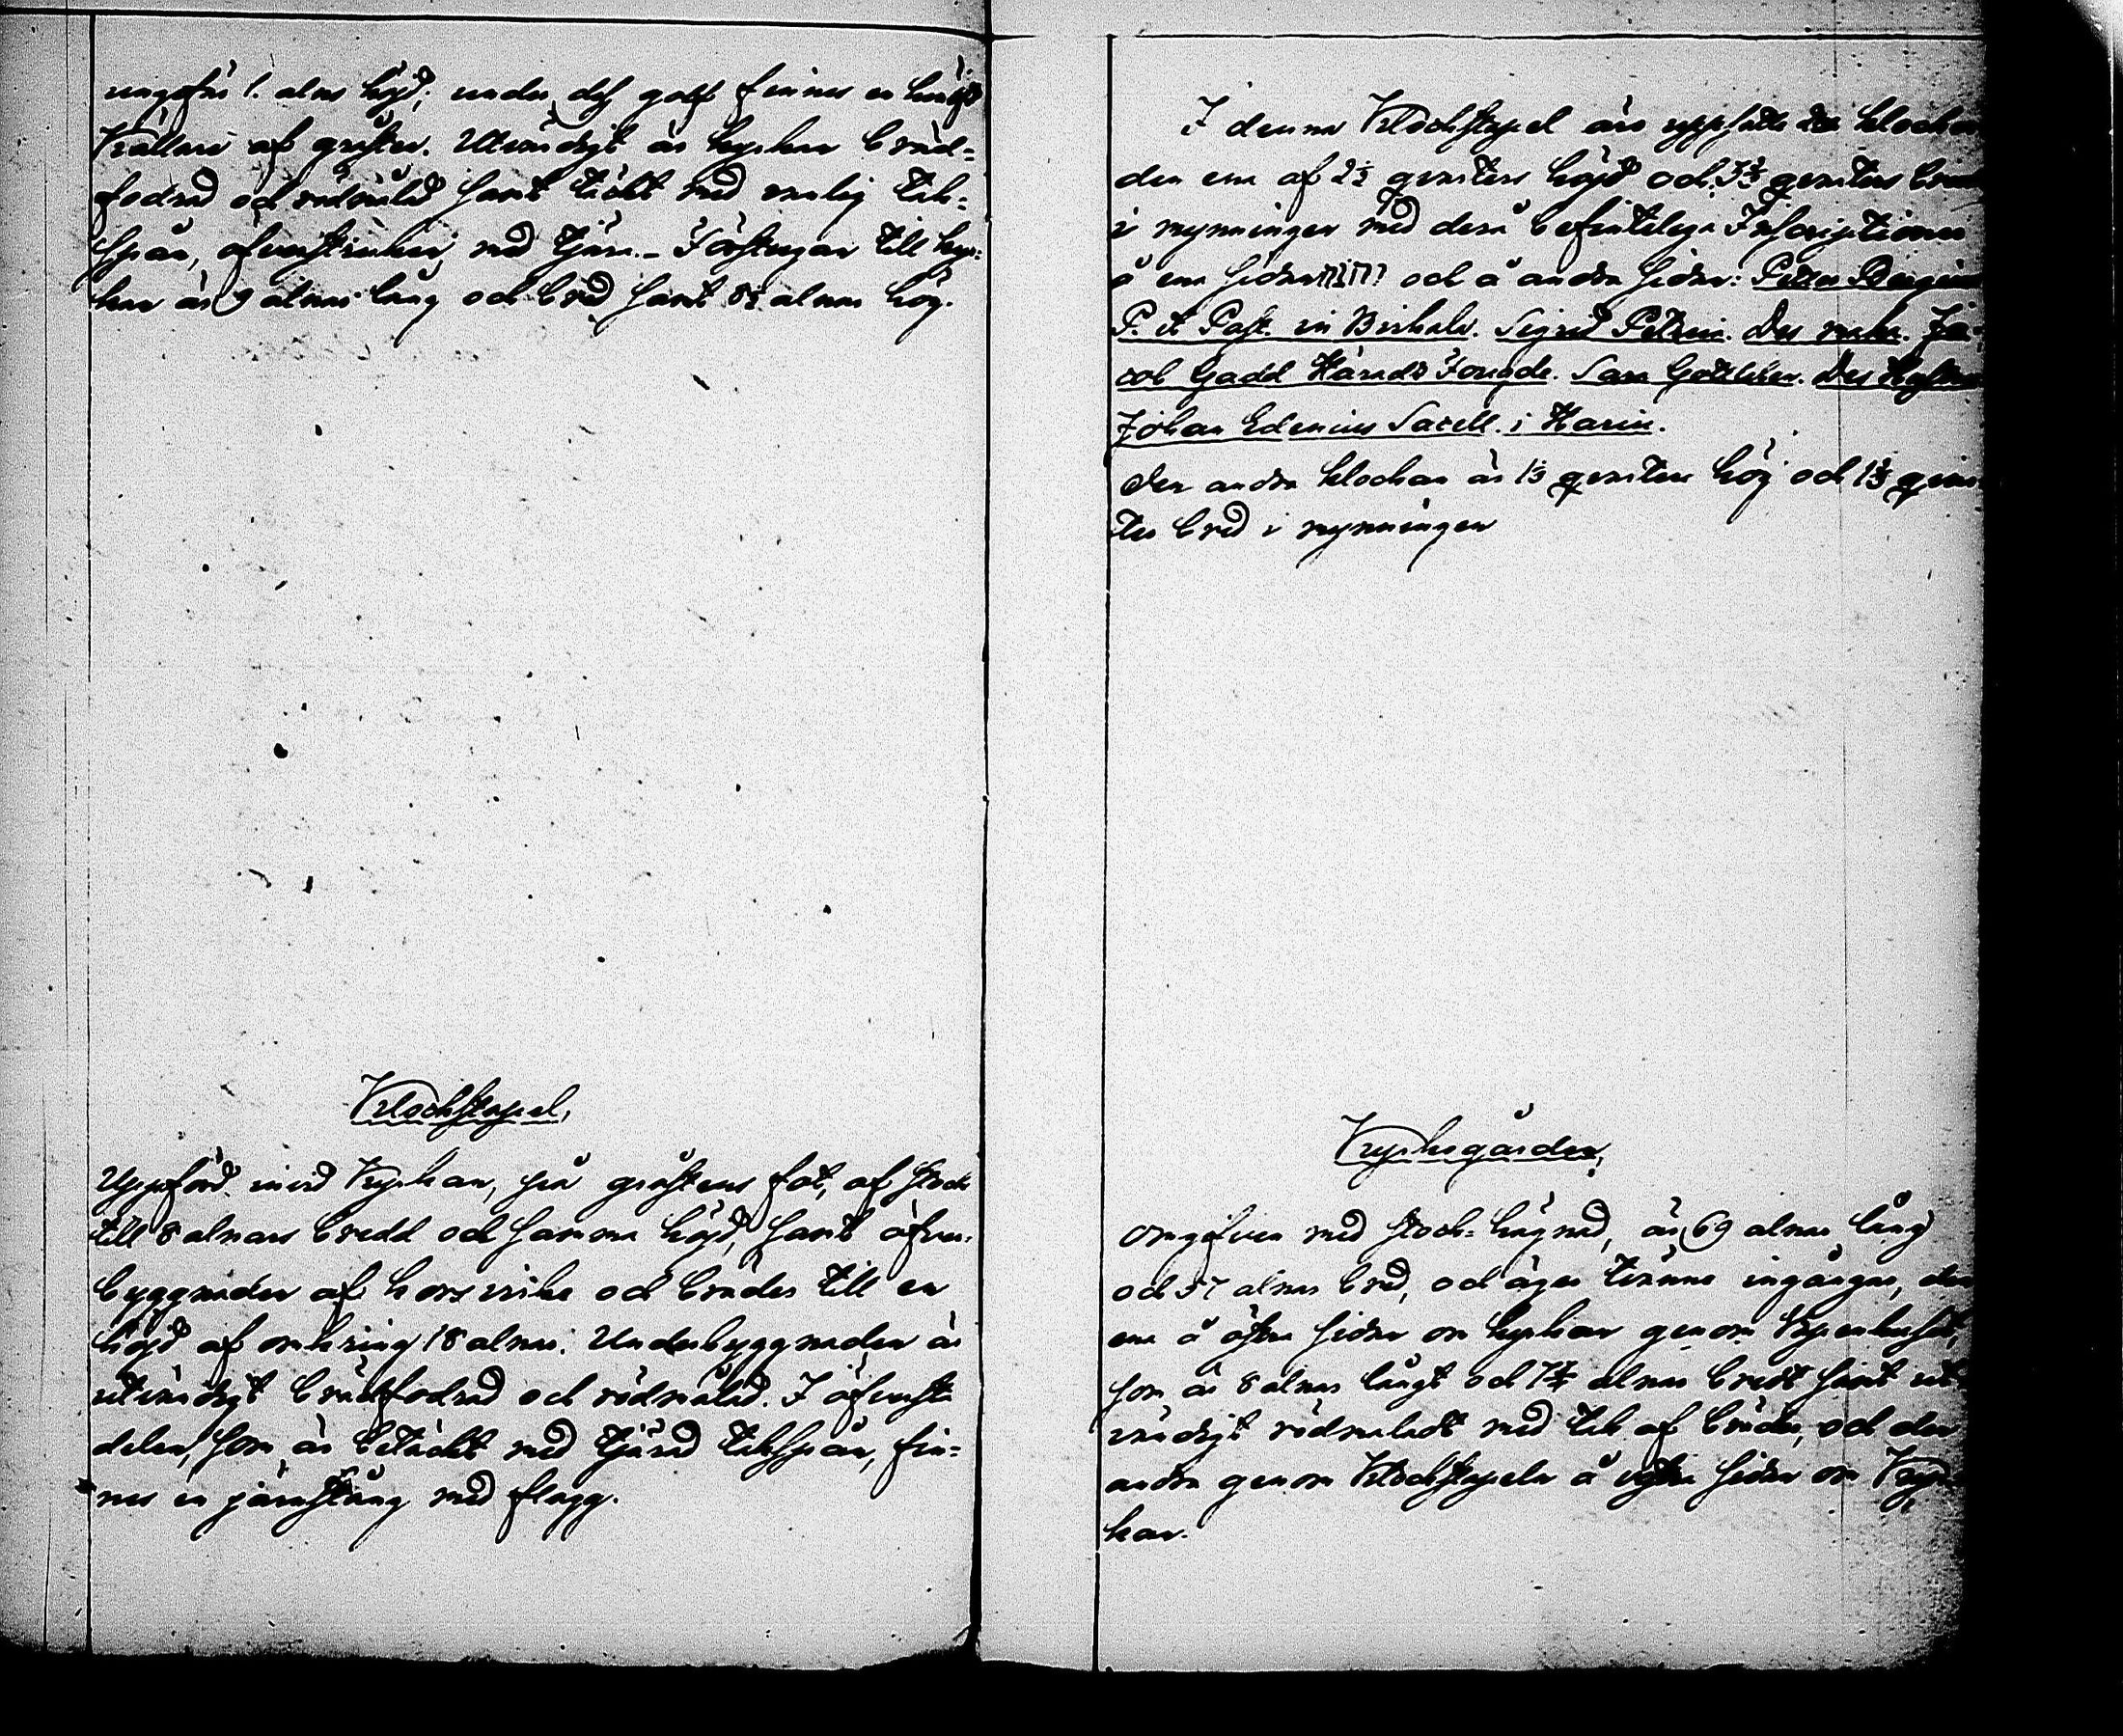 ungefär 1. alns höjd; under dess golf finnes en
Källare af gråsten. Utvändigt är kyrkan bräd-
fodrad och rödmålad samt täckt med vanlig tak-
spån, öfverstruken med tjära. – Förstugan till kyr-
kan är 9 alnar lång och bred samt 8½ alnar hög.
Klockstapel,
Uppförd invid Kyrkan, på gråstens fot, af stock
till 8 alnars bredd och samma höjd, samt öfver-
byggnaden af korsvirke och bräder till en
höjd af omkring 18 alnar. Underbyggnaden är
utvändigt brädfodrad och rödmålad. I öfversta
delen, som är betäckt med tjärad takspån, fin-
nes en järnstång med flagg.
I denna Klockstapel äro uppsatte klockor
den ena af 2½ qvarters höjd och qvarters
i mynningen med derå befinteliga Inscriptioner
å ena sidan och å andra sidan: Petter
P. et Past. in Birkala. Sigrid Petrein. Des maka. Ja-
cob Gadd Härads Fougde. Sara Gottleben. Des Hustru
Johan Edenius Sacell. i Harju.
den andra klockan är qvarter hög och qvar-
ter bred i mynningen
Kyrkogården,
omgifven med stock-hägnad, är 69 alnar lång
och 57 alnar bred, och äger tvänne ingångar, den
ena å östra sidan om kyrkan genom
som är 8 alnar långt och alnar bredt samt ut-
vändigt rödmåladt med tak af bräder, och den
andra genom Klockstapeln å vestra sidan om Kyr-
kan.